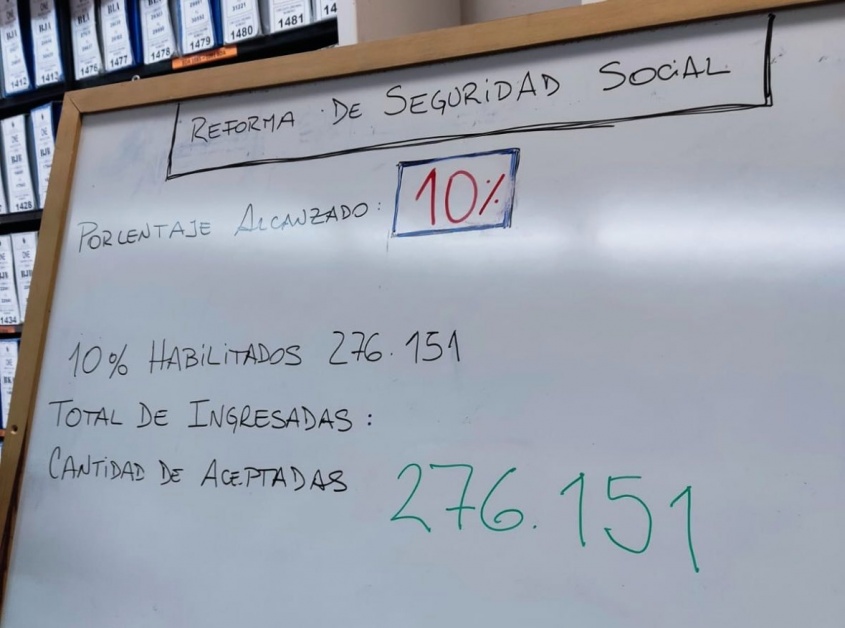 1412
1413
1476
1477
1478
1479
1480
1481
14
1428
1434
REFORMA DE SEGURIDAD SOCIAL
PORCENTAJE ALCANZADO: 10%
10% HABILITADOS 276.151
TOTAL DE INGRESADAS:
CANTIDAD DE ACEPTADAS 276.151